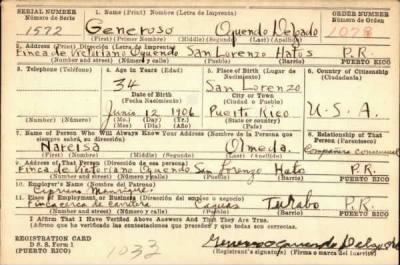 SERIAL NUMBER 1. Name (Print) Nombre (Letra de Imprenta) ORDER NUMBER
Número de Serie Número de Orden
1572 Generoso Oquendo Delgado 1078
(First) (Primer Nombre) (Middle) (Segundo) (Last) (Apellido)
2. Address (Print) Dirección (Letra de Imprenta)
Finca de Victoriano Oquendo San Lorenzo Hatos P.R.
(Number and street) Número y calle) (Town) (Pueblo) PUERTO RICO
3. Telephone (Teléfono) 4. Age in Years (Edad) 5. Place of Birth (Lugar de Nacimiento) 6. Country of Citizenship
(Ciudadanía)
34 San Lorenzo
Date of Birth City or Town
Fecha Nacimiento (Ciudad o Pueblo)
Junio 12 1906 Puerto Rico U.S.A.
(Mo.) (Day) (Yr.)
7. Name of Person Who Will Always Know Your Address (Nombre de la Persona que siempre sabrá, su dirección) 8. Relationship of That Person (Parentesco)
Narcisa Olmeda
(First) (Primer Nombre) (Middle) (Segundo) (Last) (Apellido)
9. Address of That Person (Dirección de esa persona)
Finca de Victoriano Oquendo San Lorenzo Hato P.R.
(Number and street) (Número y calle) (Town) (Pueblo) PUERTO RICO
10. Employer's Name (Nombre del Patrono)
11. Place of Employment or Business (Dirección del empleo o negocio)
Finca cerca de carretera Caguas Turabo P.R.
(Number and street) (Número y calle) (Town) (Pueblo) PUERTO RICO
I Affirm That I Have Verified Above Answers And That They Are True.
(Afirmo que he verificado las contestaciones que preceden y que todas son correctas.
REGISTRATION CARD
D. S. S. Form 1
(PUERTO RICO)
1033
Registrant's signature (Firma o marca del Registrado)